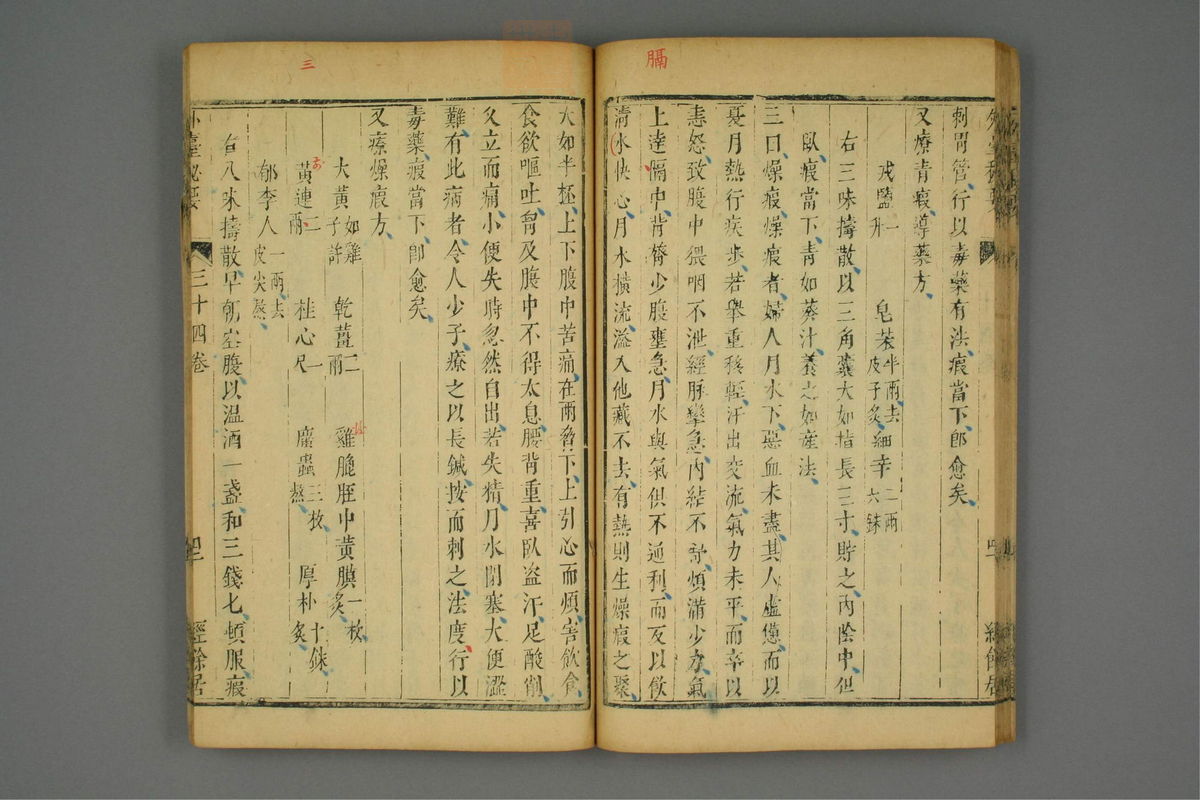 膈
刺胃管行以毒藥有法瘕當下卽愈矣
又療青瘕導藥方
戎鹽一升 皂莢半兩去皮子炙 細辛一兩六銖
右三味擣散以三角囊大如指長三寸貯之內陰中但
臥瘕當下青如葵汁養之如産法
三曰燥瘕燥瘕者婦人月水下惡血未盡其人虛憊而以
夏月熱行疾步若舉重移輕汗出交流氣力未平而卒以
恚怒致腹中猥咽不泄經脉攣急內結不舒煩滿少力氣
上達隔中背膂少腹壅急月水與氣俱不通利而反以飲
清水快心月水橫流溢入他藏不去有熱則生燥瘕之聚
三
大如半柸上下腹中苦痛在兩脅下上引心而煩害飲食
食欲嘔吐胷及腹中不得太息腰背重喜臥盜汗足酸削
久立而痛小便失時忽然自出若失精月水閉塞大便澀
難有此病者令人少子療之以長鍼按而刺之法度行以
毒藥瘕當下卽愈矣
又療燥瘕方
大黃如雞子許 乾薑二兩 雞膍胵中黃膜一枚炙
黃連二兩 桂心一尺 䗪蟲三枚熬 厚朴十銖炙
郁李人一兩去皮尖熬
右八味擣散早朝空腹以温酒一盞和三錢匕頓服瘕
外臺秘要 三十四卷 經餘居